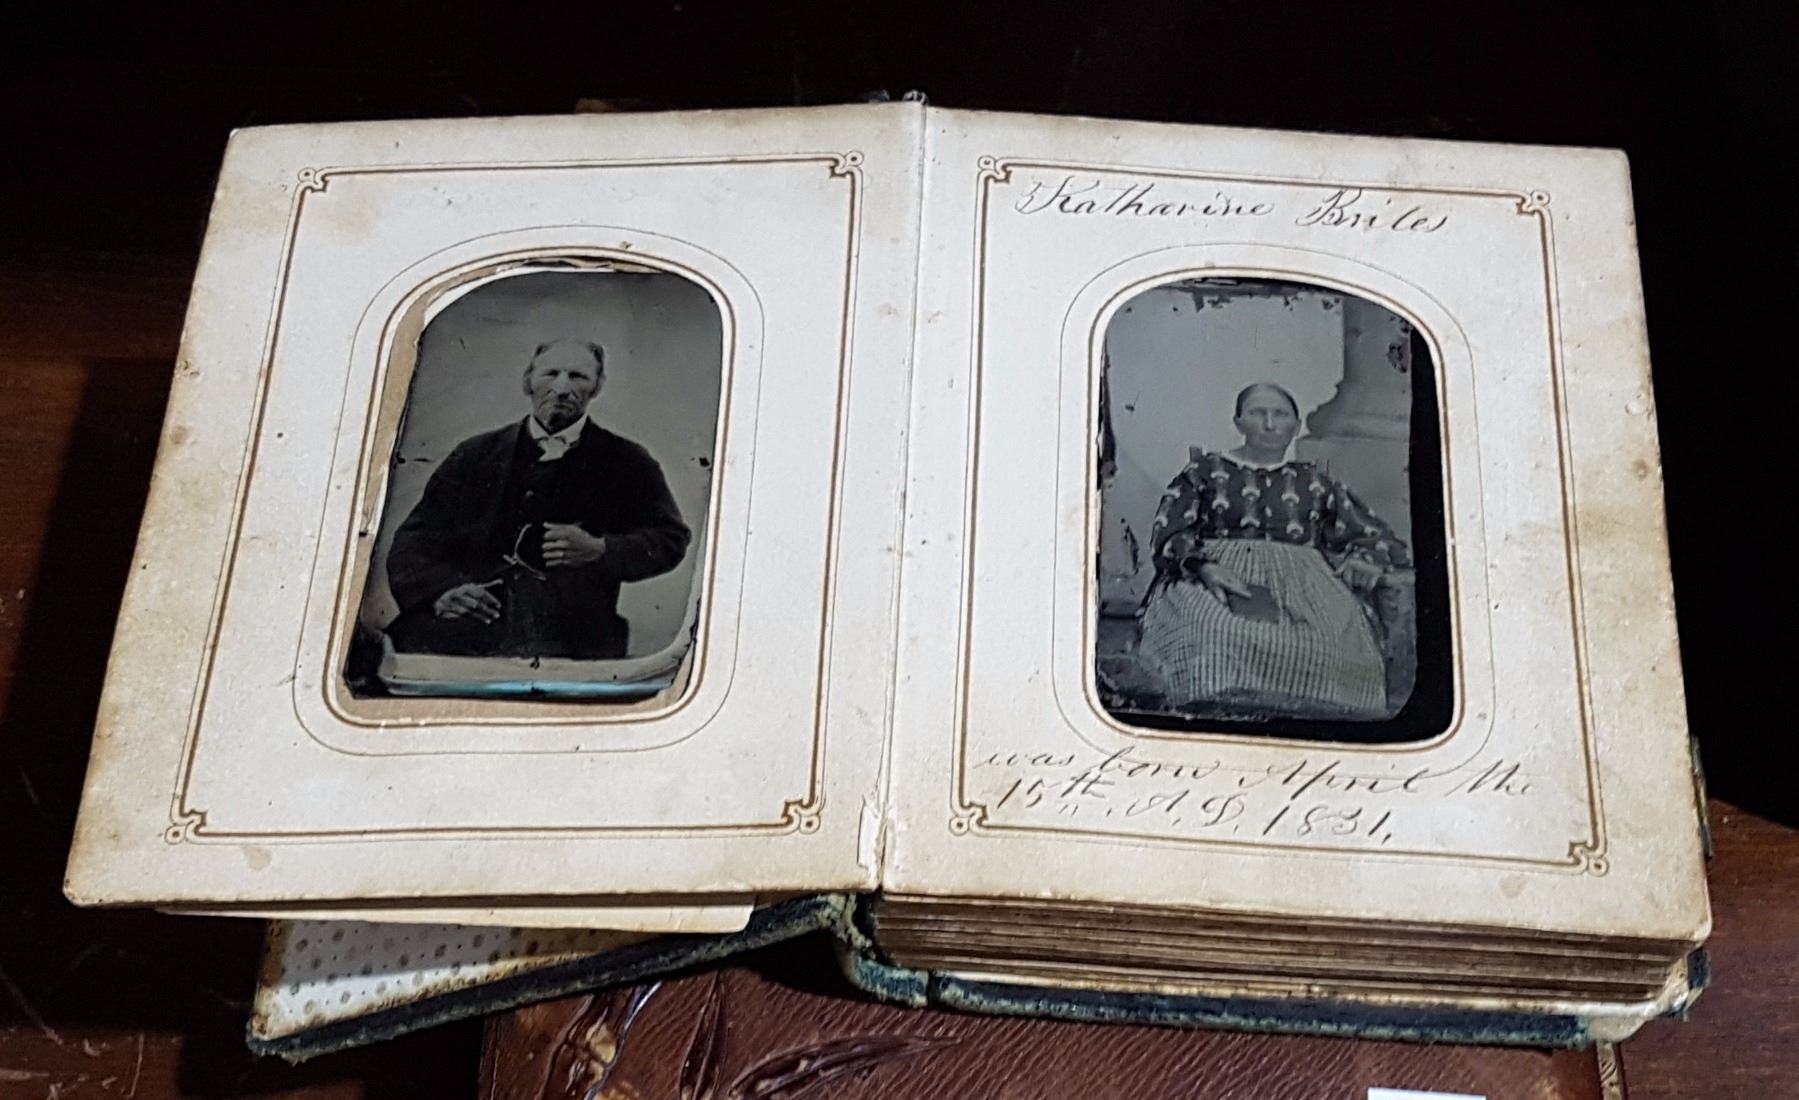 Katharine Briles
was born April the
15th. A.D. 1831.